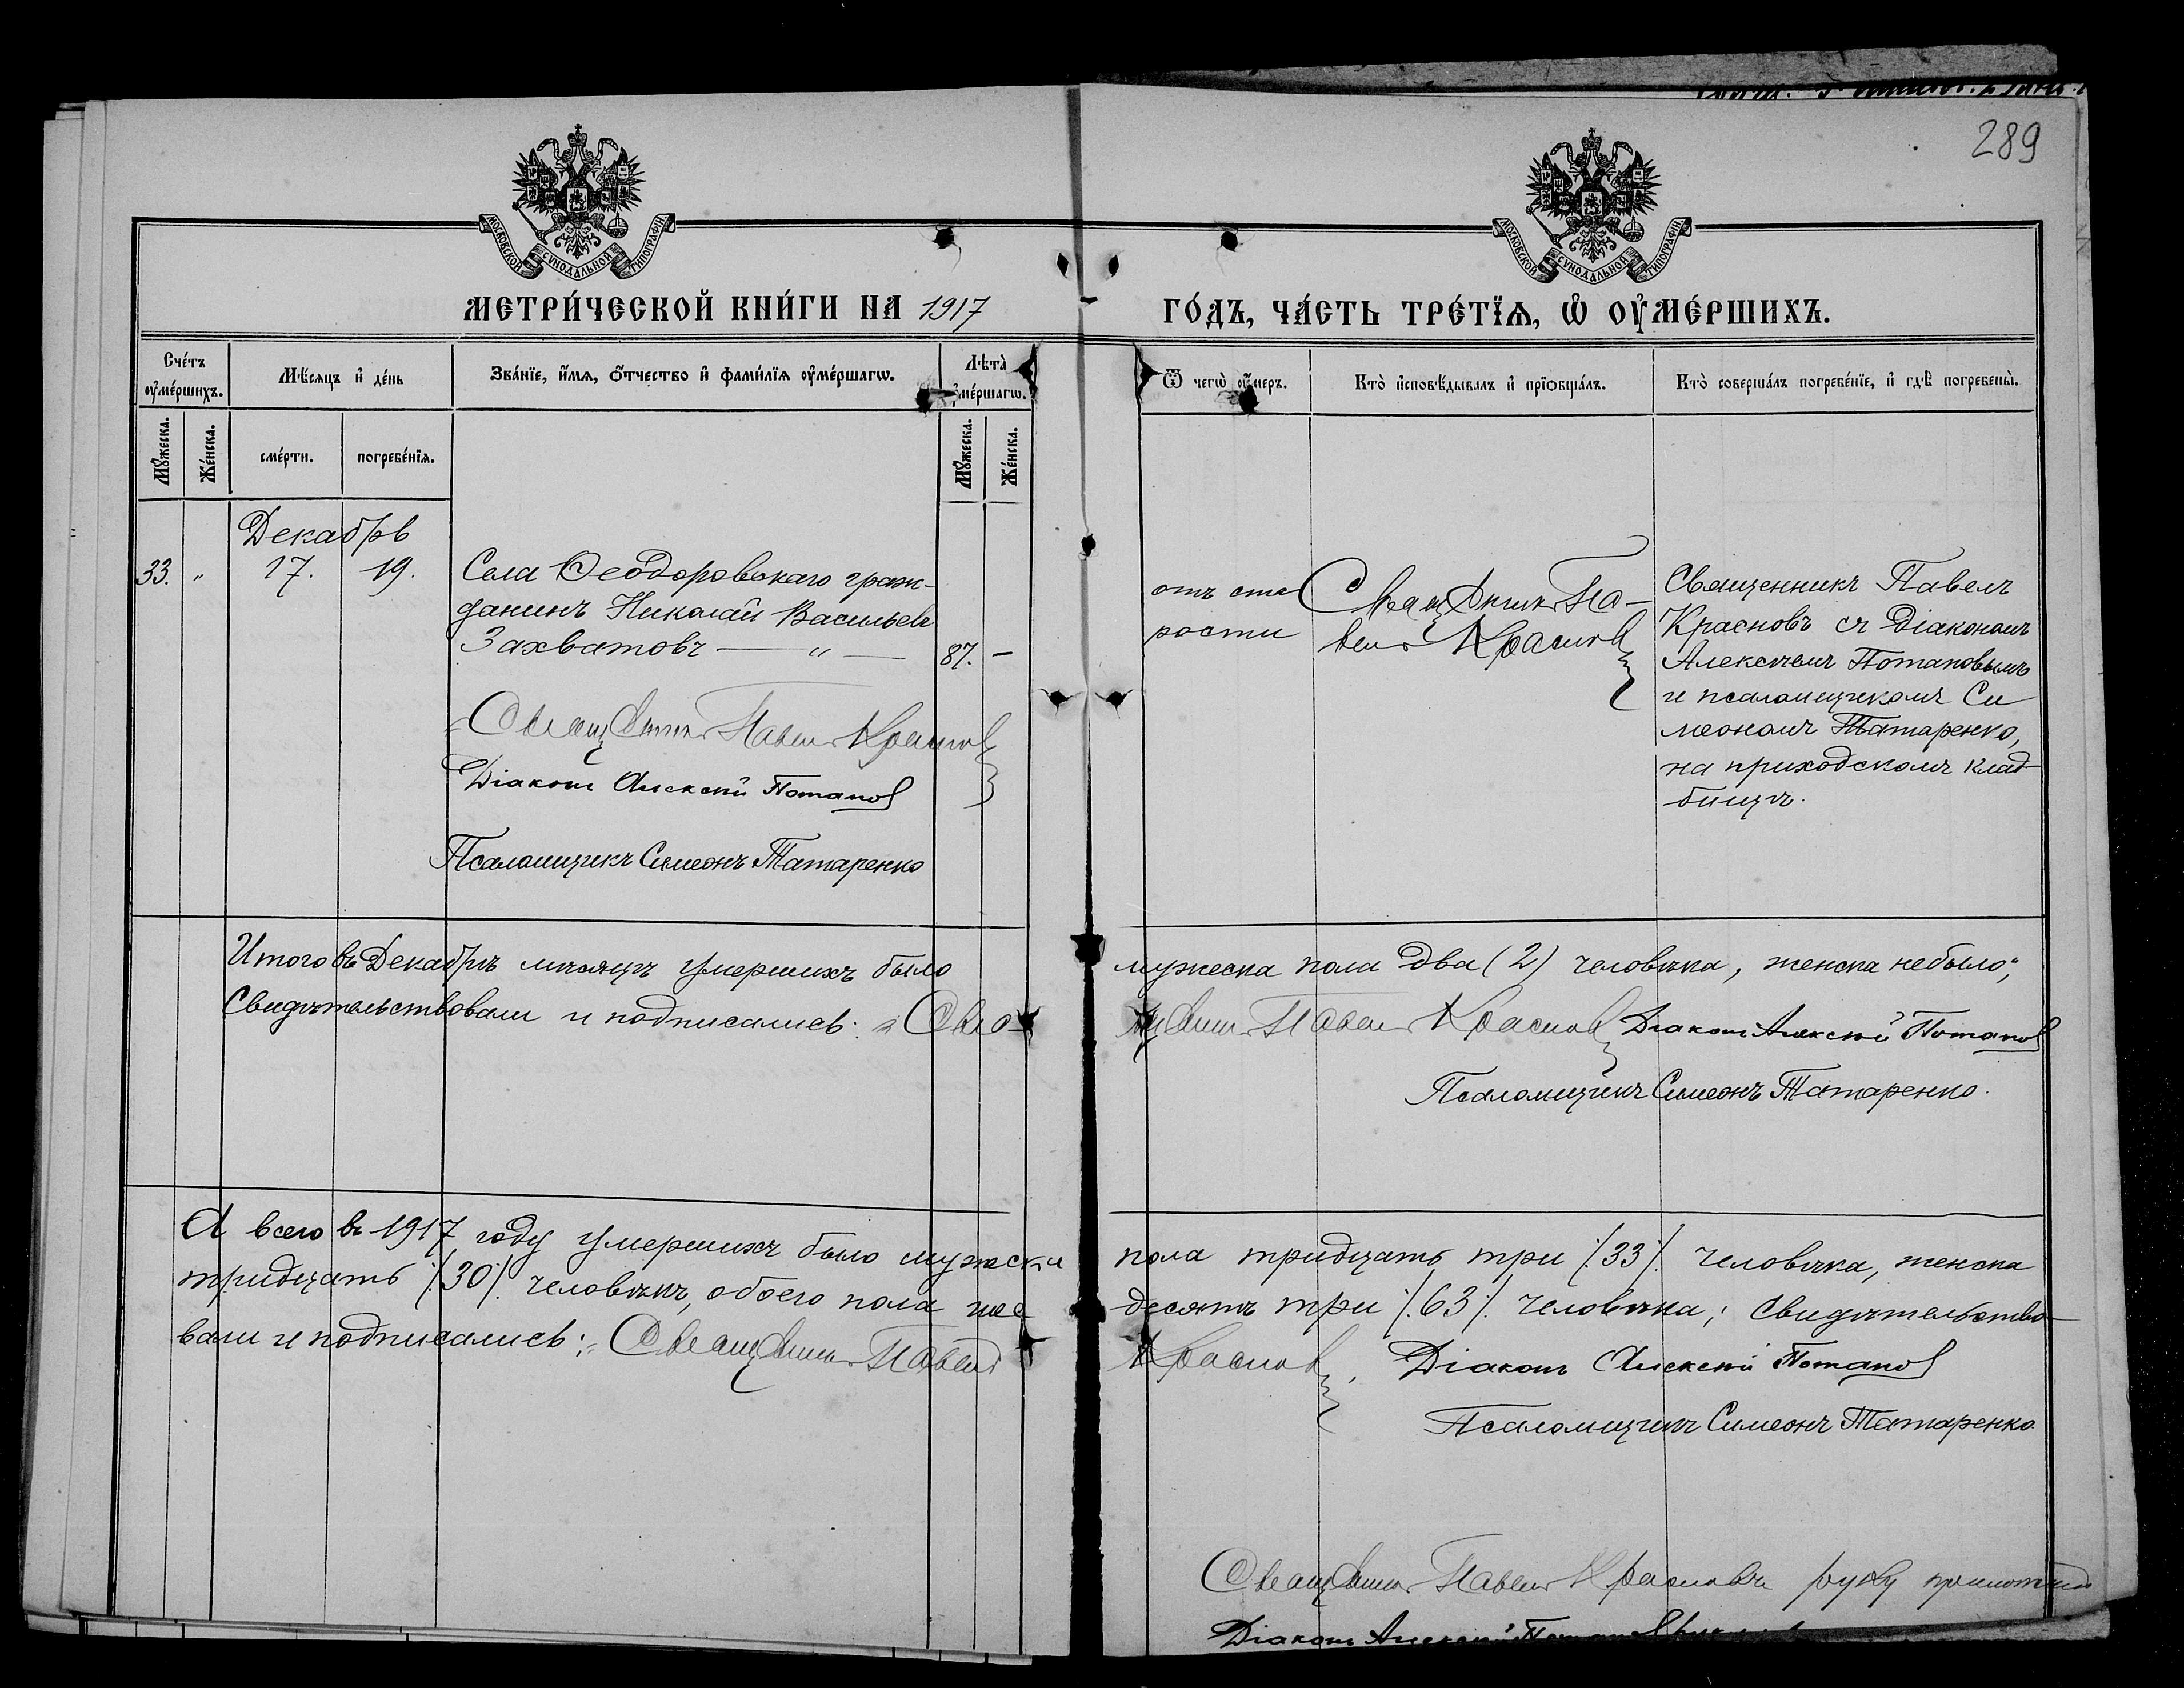 289
МОСКОВСКОЙ СУНОДАЛЬНОЙ ТИПОГРАФІИ
МОСКОВСКОЙ СУНОДАЛЬНОЙ ТИПОГРАФІИ
МЕТРИ́ЧЕСКОЙ КНИ́ГИ НА 1917
ГО́ДЪ, ЧА́СТЬ ТРЕ́ТЇѦ, Ѡ҆ ОУ҆МЕ́РШИХЪ.
Сче́тъ оу҆ме́ршихъ.
Мѣ́сяцъ и҆ де́нь
Зва́нїе, и҆́мѧ, ѻ҆́тчество и҆ фами́лїѧ оу҆ме́ршагѡ.
Лѣ́та оу҆ме́ршагѡ.
Ѿ чегѡ̀ оу҆́меръ.
Кто̀ и҆сповѣ́дывалъ и҆ прїѡбща́лъ.
Кто̀ соверша́лъ погребе́нїе, и҆ гдѣ̀ погребены̀.
Мꙋ́жеска.
Же́нска.
сме́рти.
погребе́нїѧ.
Мꙋ́жеска.
Же́нска.
Декабрь
33. " 17. 19.
Села Ѳеодоровскаго граж-
данинъ Николай Васильевъ
Захватовъ — " — 87. —
Священникъ Павелъ Краснов
Діаконъ Алексѣй Потапов
Псаломщикъ Симеонъ Татаренко
отъ ста
рости
Священникъ Па-
велъ Краснов
Священникъ Павелъ
Красновъ съ Діакономъ
Алексѣемъ Потаповымъ
и псаломщикомъ Си
меономъ Татаренко,
на приходскомъ клад-
бищѣ.
Итого въ Декабрѣ мѣсяцѣ умершихъ было мужеска пола два (2) человѣка, женска небыло;
Свидѣтельствовали и подписались: Свя-щенникъ Павелъ Краснов Діаконъ Алексѣй Потапов
Псаломщикъ Симеонъ Татаренко.
А всего въ 1917 году умершихъ было мужска пола тридцать три /.33/. человѣка, женска
тридцать /.30/. человѣкъ, обоего пола шес десятъ три /.63/. человѣка; свидѣтельство-
вали и подписались: Священникъ Павелъ Краснов, Діаконъ Алексѣй Потапов
Псаломщикъ Симеонъ Татаренко
Священникъ Павелъ Красновъ руку приложилъ
Діаконъ Алексѣй